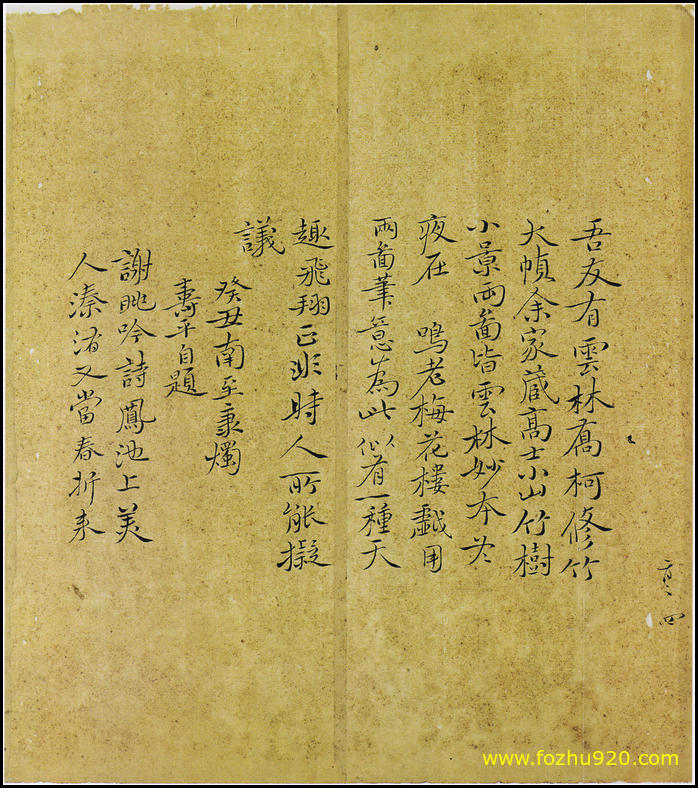 吾友有雲林喬柯修竹
大幀余家藏高士小山竹樹
小景兩啚皆雲林妙本於
夜在 鳴老梅花樓戲用
兩啚筆意為此似有一種天
趣飛翔正非時人所能擬
議
癸丑南至秉燭
壽平自題
謝眺吟詩鳳池上美
人溱渚又當春折来
四
www.fozhu920.com